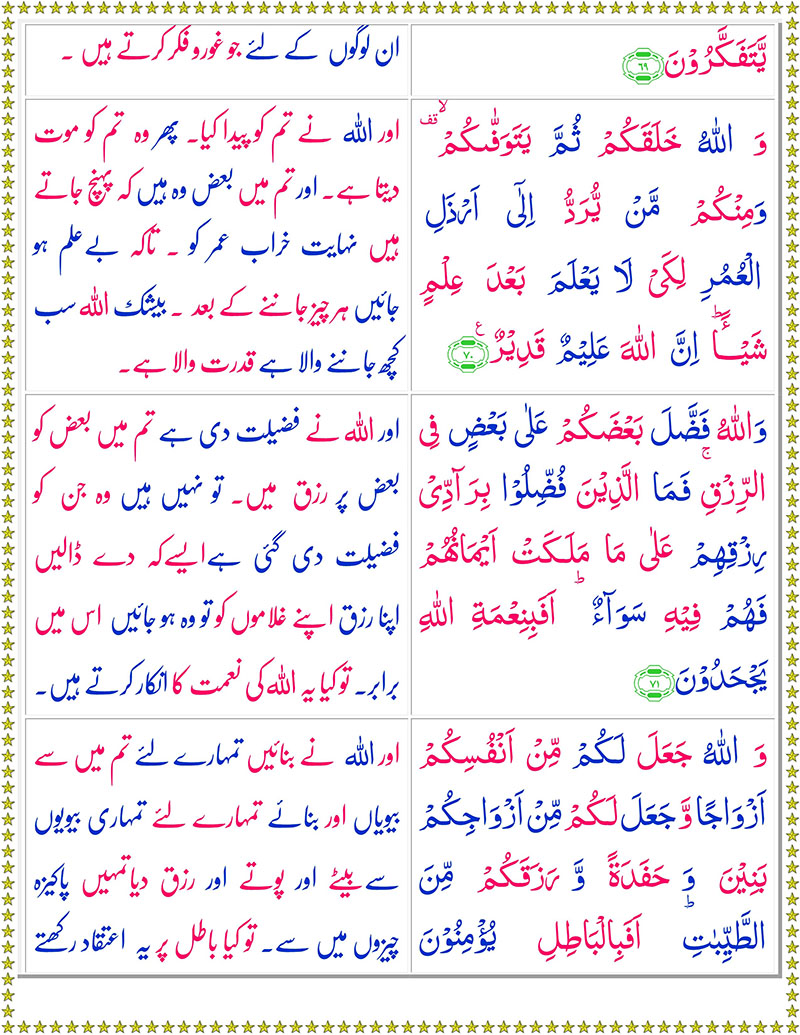 يَّتَفَكَّرُوْنَ ۶۹
ان لوگوں کے لئے جو غوروفکر کرتے ہیں ۔
وَ اللّٰهُ خَلَقَكُمْ ثُمَّ يَتَوَفّٰىكُمْ ۙ قف
وَمِنْكُمْ مَّنْ يُّرَدُّ اِلٰٓى اَرْذَلِ
الْعُمُرِ لِكَىْ لَا يَعْلَمَ بَعْدَ عِلْمٍ
شَيْــًٔـا ؕ اِنَّ اللّٰهَ عَلِيْمٌ قَدِيْرٌ ع ۷۰
اور اللہ نے تم کو پیدا کیا۔ پھر وہ تم کو موت
دیتا ہے۔ اور تم میں بعض وہ ہیں کہ پہنچ جاتے
ہیں نہایت خراب عمر کو ۔ تاکہ بے علم ہو
جائیں ہر چیز جاننے کے بعد ۔ بیشک اللہ سب
کچھ جاننے والا ہے قدرت والا ہے۔
وَاللّٰهُ فَضَّلَ بَعْضَكُمْ عَلٰى بَعْضٍ فِى
الرِّزْقِ ۚ فَمَا الَّذِيْنَ فُضِّلُوْا بِرَآدِّىْ
رِزْقِهِمْ عَلٰى مَا مَلَكَتْ اَيْمَانُهُمْ
فَهُمْ فِيْهِ سَوَآءٌ ؕ اَفَبِنِعْمَةِ اللّٰهِ
يَجْحَدُوْنَ ۷۱
اور اللہ نے فضیلت دی ہے تم میں بعض کو
بعض پر رزق میں۔ تو نہیں ہیں وہ جن کو
فضیلت دی گئی ہے ایسے کہ دے ڈالیں
اپنا رزق اپنے غلاموں کو تو وہ ہو جائیں اس میں
برابر۔ تو کیا یہ اللہ کی نعمت کا انکار کرتے ہیں۔
وَ اللّٰهُ جَعَلَ لَكُمْ مِّنْ اَنْفُسِكُمْ
اَزْوَاجًا وَّ جَعَلَ لَكُمْ مِّنْ اَزْوَاجِكُمْ
بَنِيْنَ وَ حَفَدَةً وَّ رَزَقَكُمْ مِّنَ
الطَّيِّبٰتِ ؕ اَفَبِالْبَاطِلِ يُؤْمِنُوْنَ
اور اللہ نے بنائیں تمہارے لئے تم میں سے
بیویاں اور بنائے تمہارے لئے تمہاری بیویوں
سے بیٹے اور پوتے اور رزق دیا تمہیں پاکیزہ
چیزوں میں سے۔ تو کیا باطل پر یہ اعتقاد رکھتے